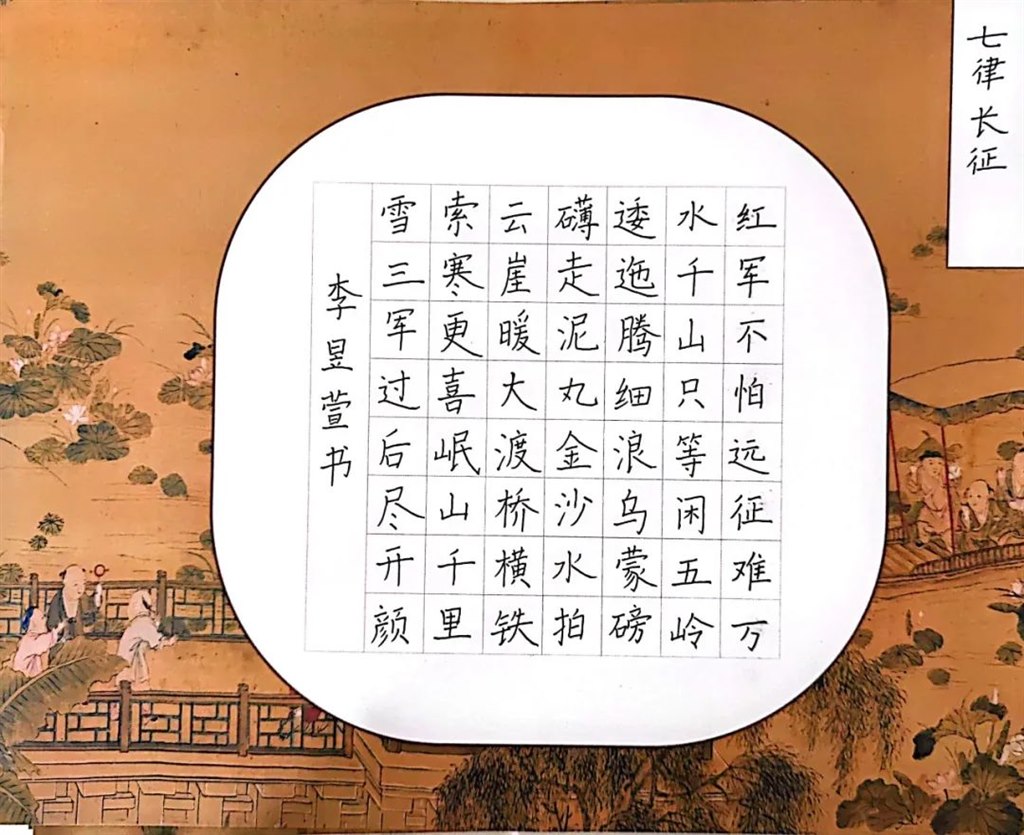 七律 长征
红军不怕远征难万
水千山只等闲五岭
逶迤腾细浪乌蒙磅
礴走泥丸金沙水拍
云崖暖大渡桥横铁
索寒更喜岷山千里
雪三军过后尽开颜
李昱萱书